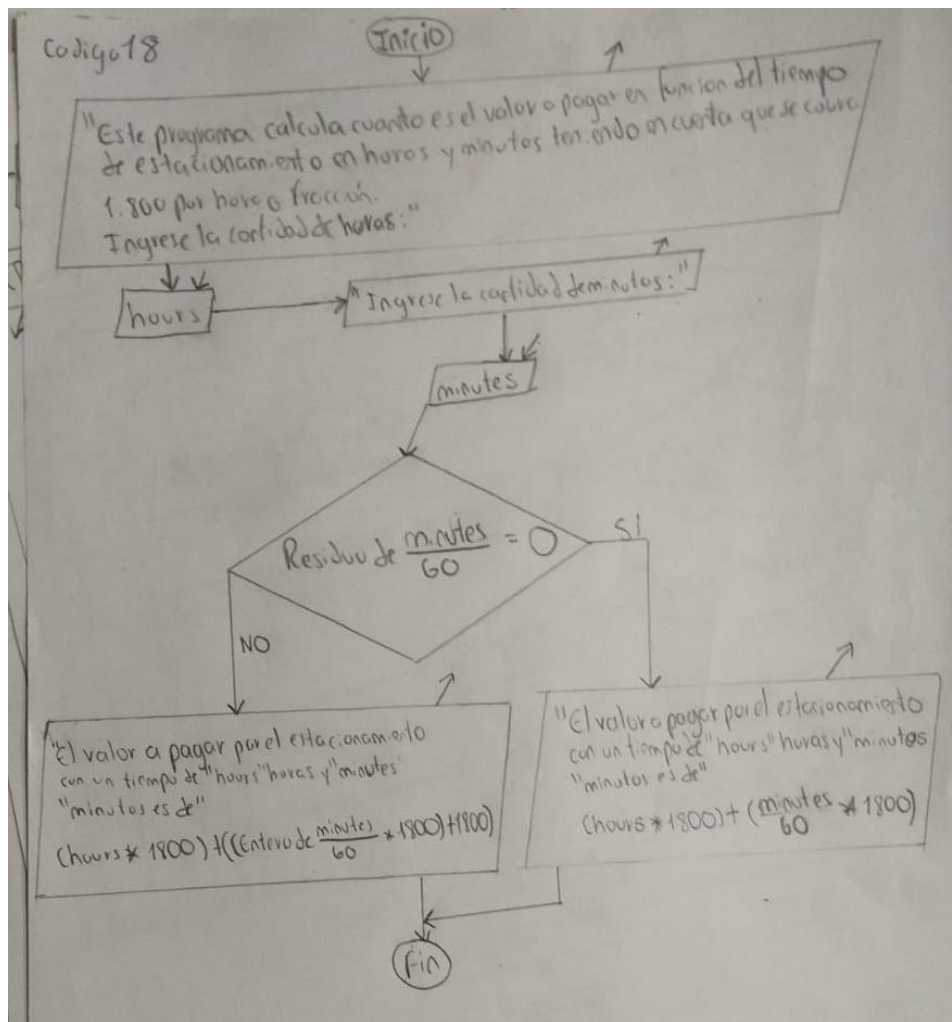 Codigo18
Inicio
"Este programa calcula cuanto es el valor a pagar en funcion del tiempo
de estacionamiento en horas y minutos teniendo en cuenta que se cobra
1.800 por hora o fracción.
Ingrese la cantidad de horas:"
hours
"Ingrese la cantidad de minutos:"
minutes
Residuo de minutes/60 = 0
SI
NO
"El valor a pagar por el estacionamiento
con un tiempo de "hours" horas y "minutes"
"minutos es de"
(hours * 1800) + ((Entero de minutes/60 * 1800) + 1800)
"El valor a pagar por el estacionamiento
con un tiempo de "hours" horas y "minutos
"minutos es de"
(hours * 1800) + (minutes/60 * 1800)
Fin